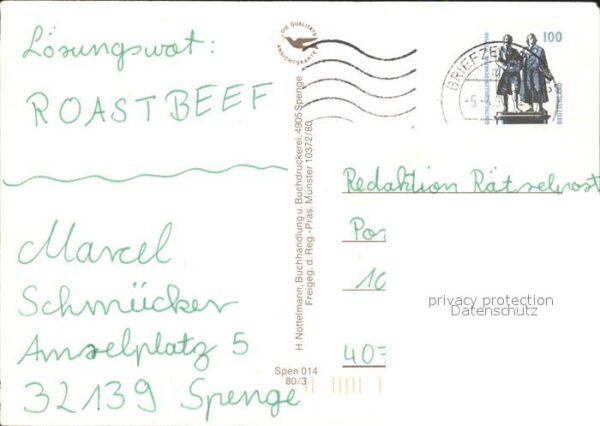 Lösungswort:
ROASTBEEF
Marcel
Schmücker
Amselplatz 5
32139 Spenge
DIE QUALITÄTS
ANSICHTSKARTE
H. Nottelmann, Buchhandlung u. Buchdruckerei, 4905 Spenge
Freigeg. d. Reg.-Präs. Münster 10372/80
Spen 014
80/3
BRIEFZEN
100
Redaktion Rätselpost
Pos
10
40
privacy protection
Datenschutz